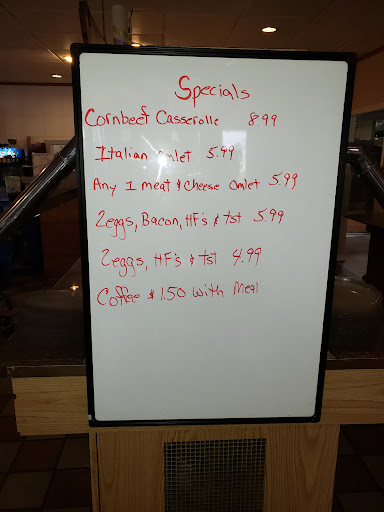 Specials
Cornbeef Casserolle 8.99
Italian omlet 5.99
Any 1 meat & Cheese omlet 5.99
2eggs, Bacon, HF's & tst 5.99
2eggs, HF's & tst 4.99
Coffee $1.50 with Meal